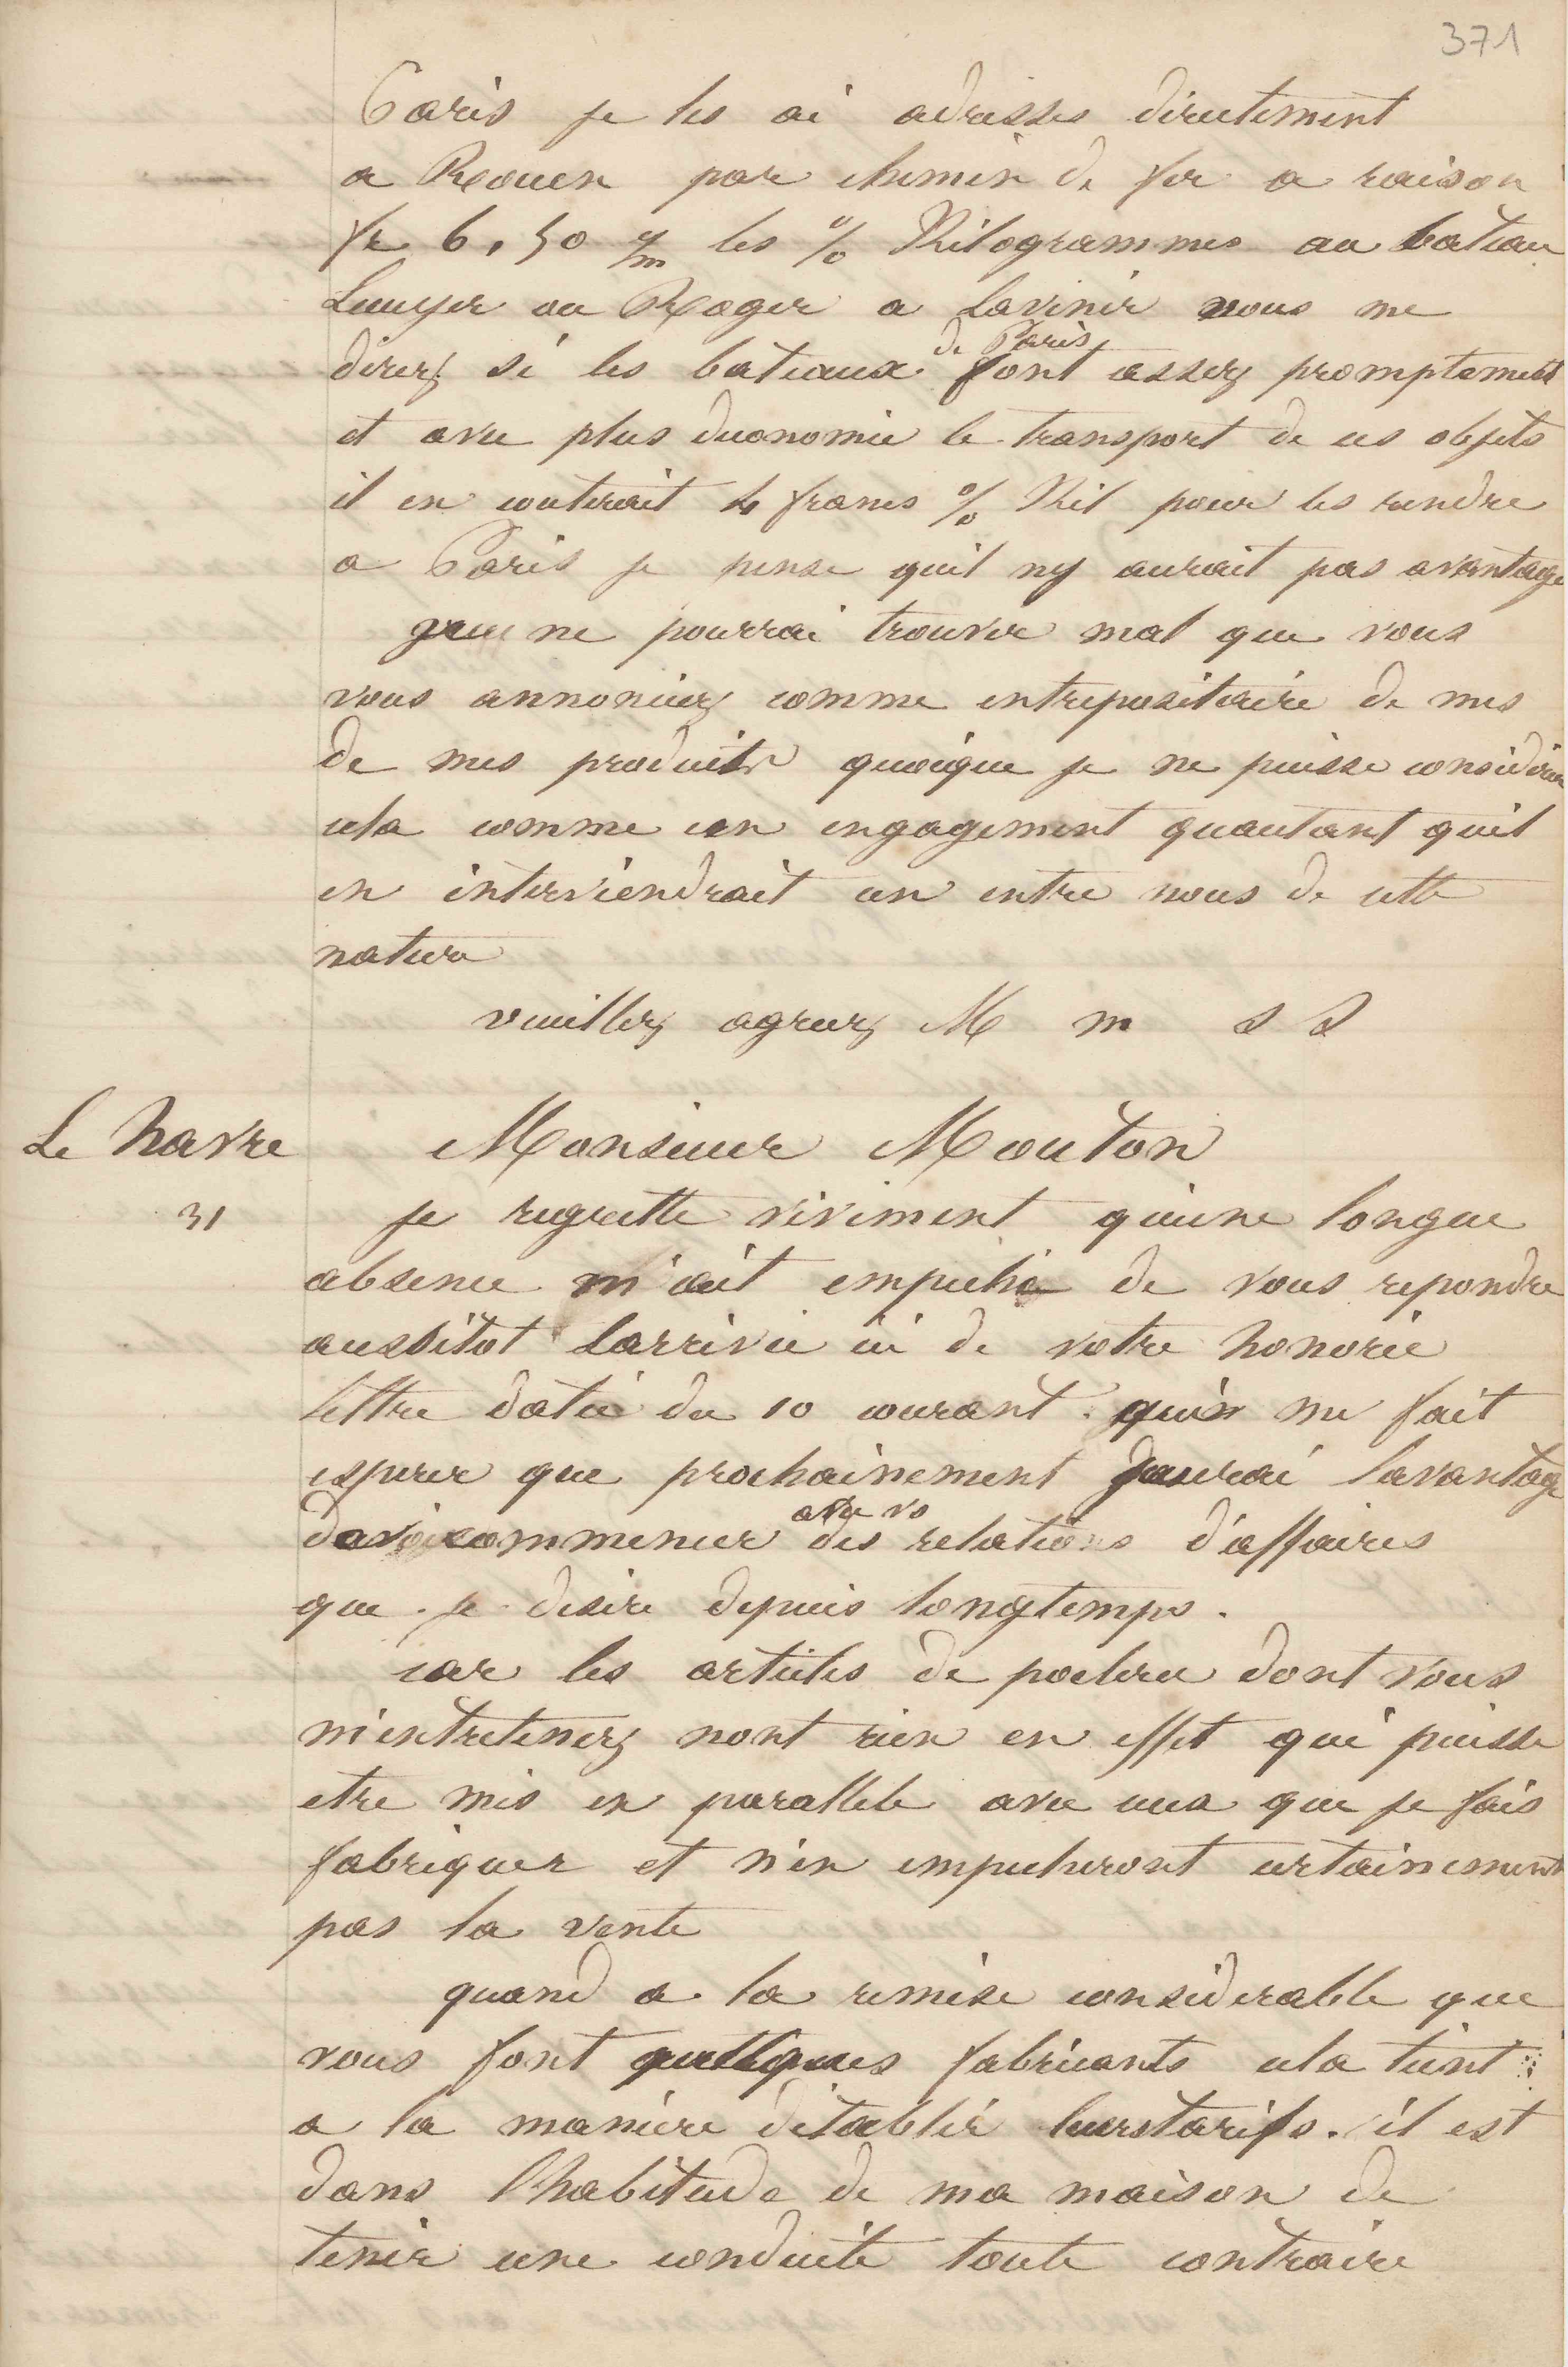 371
Paris je les ai adresses directement
a Rouen par chemin de fer a raison
fr 6,50 les % Kilogrammes au bateau
ou Roger a lavenir vous me
de Paris
direz si les bateaux font assez promptement
et avec plus deconomie le transport de ces objets
il en couterait 4 francs % Kil pour les rendre
a Paris je pense quil ny aurait pas avantage
je ne pourrai trouver mal que vous
vous annonciez comme entrepositaire de mes
de mes produits quoique je ne puisse considerer
cela comme un engagement quautant quil
en interviendrait un entre nous de cette
nature
veuillez agreez M m s s
Le havre
Monsieur Mouton
31
je regrette vivement qu'une longue
absence m'ait empeché de vous repondre
aussitot larrivée ici de votre honorée
lettre datée du 10 courant. qui me fait
esperer que prochainement jaurai lavantage
avec vs
davoir commencer des relations d'affaires
que je desire depuis longtemps.
car les articles de poelerie dont vous
m'entretenez nont rien en effet qui puisse
etre mis en parallele avec ceux que je fais
fabriquer et n'en empecheront certainement
pas la vente
quand a la remise considerable que
vous font quelques fabricants cela tient
a la maniere d'etablir leurs tarifs. il est
dans l'habitude de ma maison de
tenir une conduite toute contraire